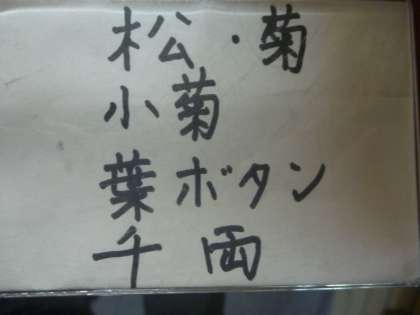 松・菊
小菊
葉ボタン
千両